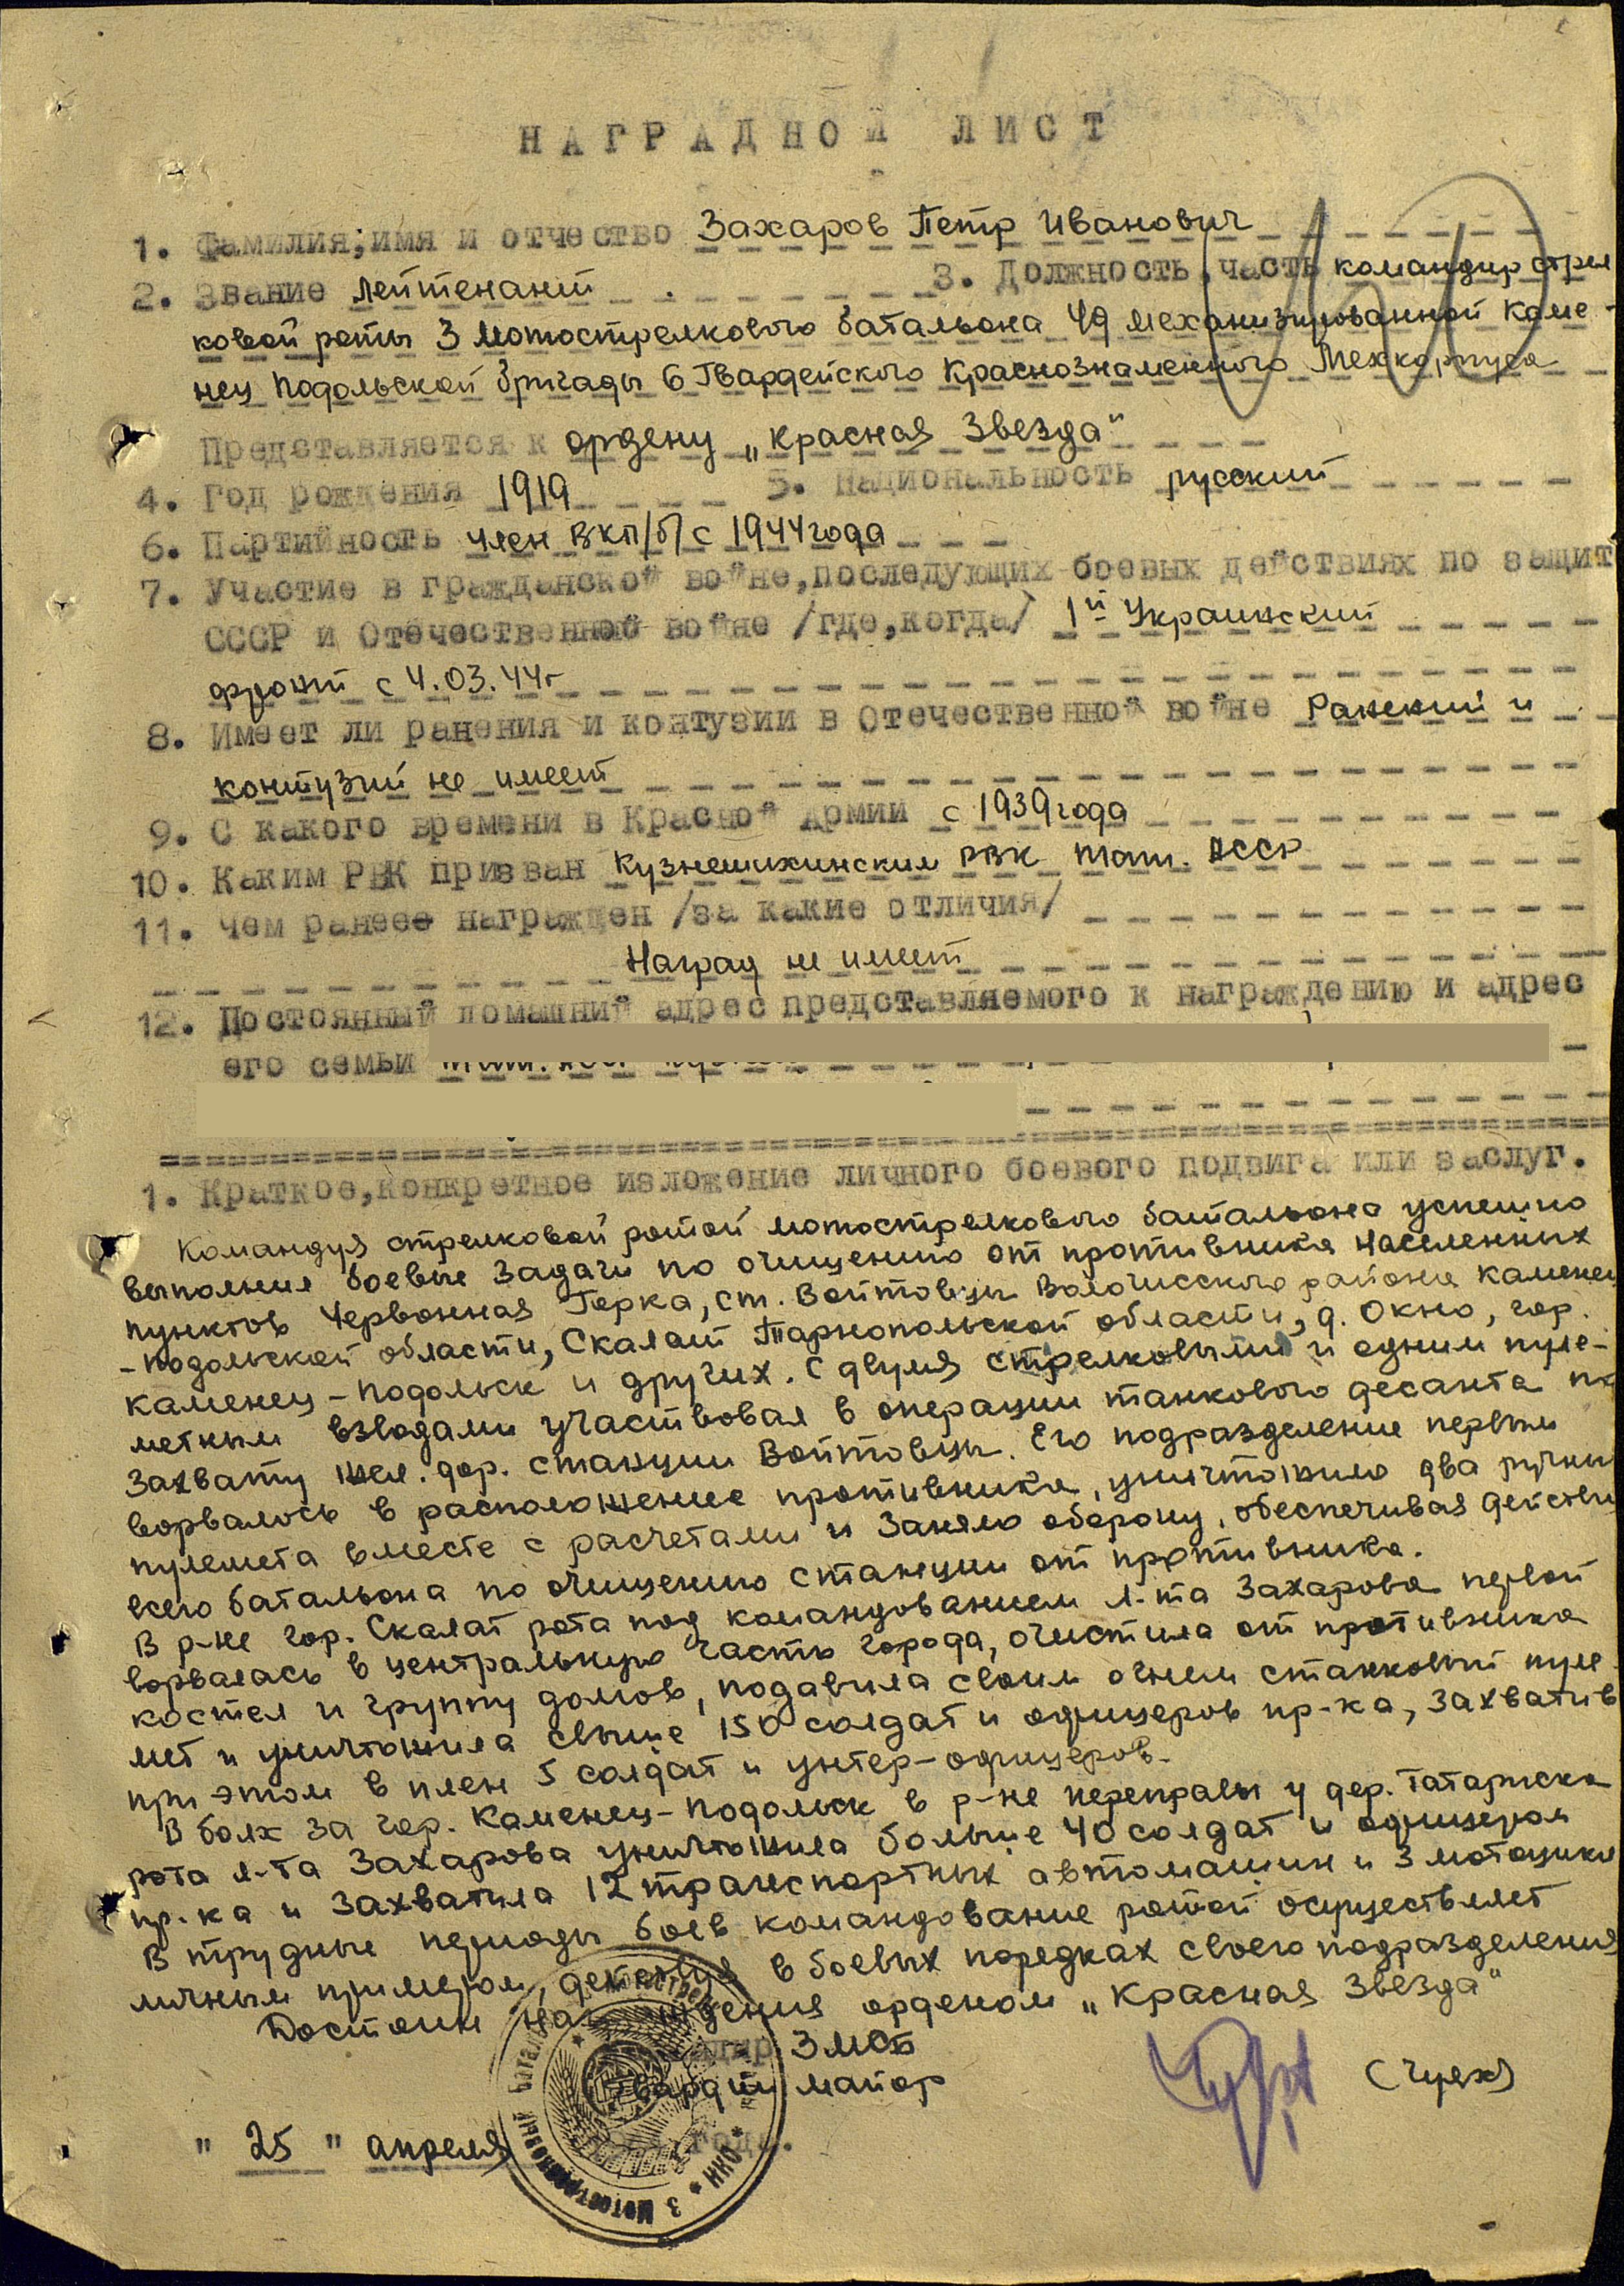 НАГРАДНОЙ ЛИСТ
1. Фамилия, имя и отчество Захаров Петр Иванович
2. Звание лейтенант 3. Должность, часть командир стрел
ковой роты 3 мотострелкового батальона 49 механизированной Каме-
нец Подольской бригады 6 Гвардейского Краснознаменного Мехкорпуса
Представляется к ордену „Красная Звезда"
4. Год рождения 1919 5. Национальность русский
6. Партийность член ВКП/б/ с 1944 года
7. Участие в гражданской войне, последующих боевых действиях по защит
СССР и Отечественной войне /где, когда/ 1й Украинский
фронт с 4.03.44г
8. Имеет ли ранения и контузии в Отечественной войне Ранений и
контузий не имеет
9. С какого времени в Красной Армии с 1939 года
10. Каким РВК призван Кузнечихинским РВК Тат. АССР
11. Чем ранее награжден /за какие отличия/
Наград не имеет
12. Постоянный домашний адрес представляемого к награждению и адрес
его семьи
1. Краткое, конкретное изложение личного боевого подвига или заслуг.
Командуя стрелковой ротой мотострелкового батальона успешно
выполнил боевые задачи по очищению от противника населенных
пунктов Червонная Горка, ст. Войтовцы Волочисского района Каменец
-Подольской области, Скалат Тарнопольской области, д. Окно, гор.
Каменец-Подольск и других. С двумя стрелковыми и одним пуле-
метным взводами участвовал в операции танкового десанта по
захвату жел. дор. станции Войтовцы. Его подразделение первым
ворвалось в расположение противника, уничтожило два ручных
пулемета вместе с расчетами и заняло оборону, обеспечивая действи
всего батальона по очищению станции от противника.
В р-не гор. Скалат рота под командованием л-та Захарова первой
ворвалась в центральную часть города, очистила от противника
костел и группу домов, подавила своим огнем станковый пуле
мет и уничтожила свыше 150 солдат и офицеров пр-ка, захватив
при этом в плен 5 солдат и унтер-офицеров.
В боях за гор. Каменец-Подольск в р-не переправы у дер. Татариска
рота л-та Захарова уничтожила больше 40 солдат и офицеров
пр-ка и захватила 12 транспортных автомашин и 3 мотоцикл
В трудные периоды боев командование ротой осуществляет
личным примером, действуя в боевых порядках своего подразделения
Достоин награждения орденом „Красная Звезда"
3 МСБ
гвардии майор (Чурях)
" 25 " апреля года.
3 Мотострелковый батальон * НКО *